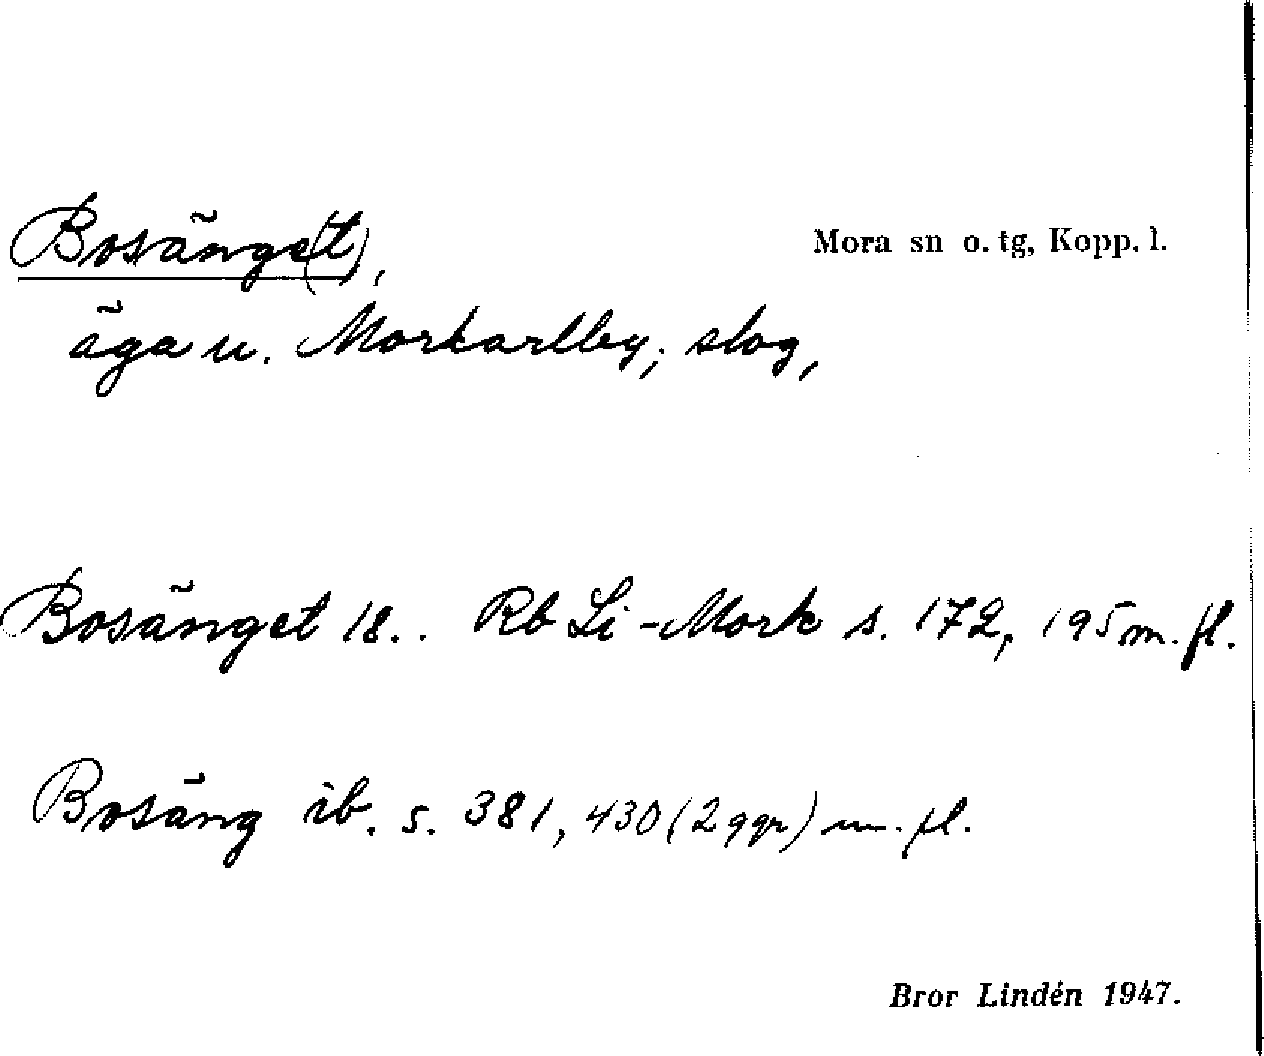 Bosänge(t), Mora sn o. tg, Kopp. l.
äga u. Morkarlby; slog,
Bosänget 18.. Rb Li-Mork s. 172, 195 m. fl.
Bosäng ib. s. 381, 430 (2 ggr) m. fl.
Bror Lindén 1947.